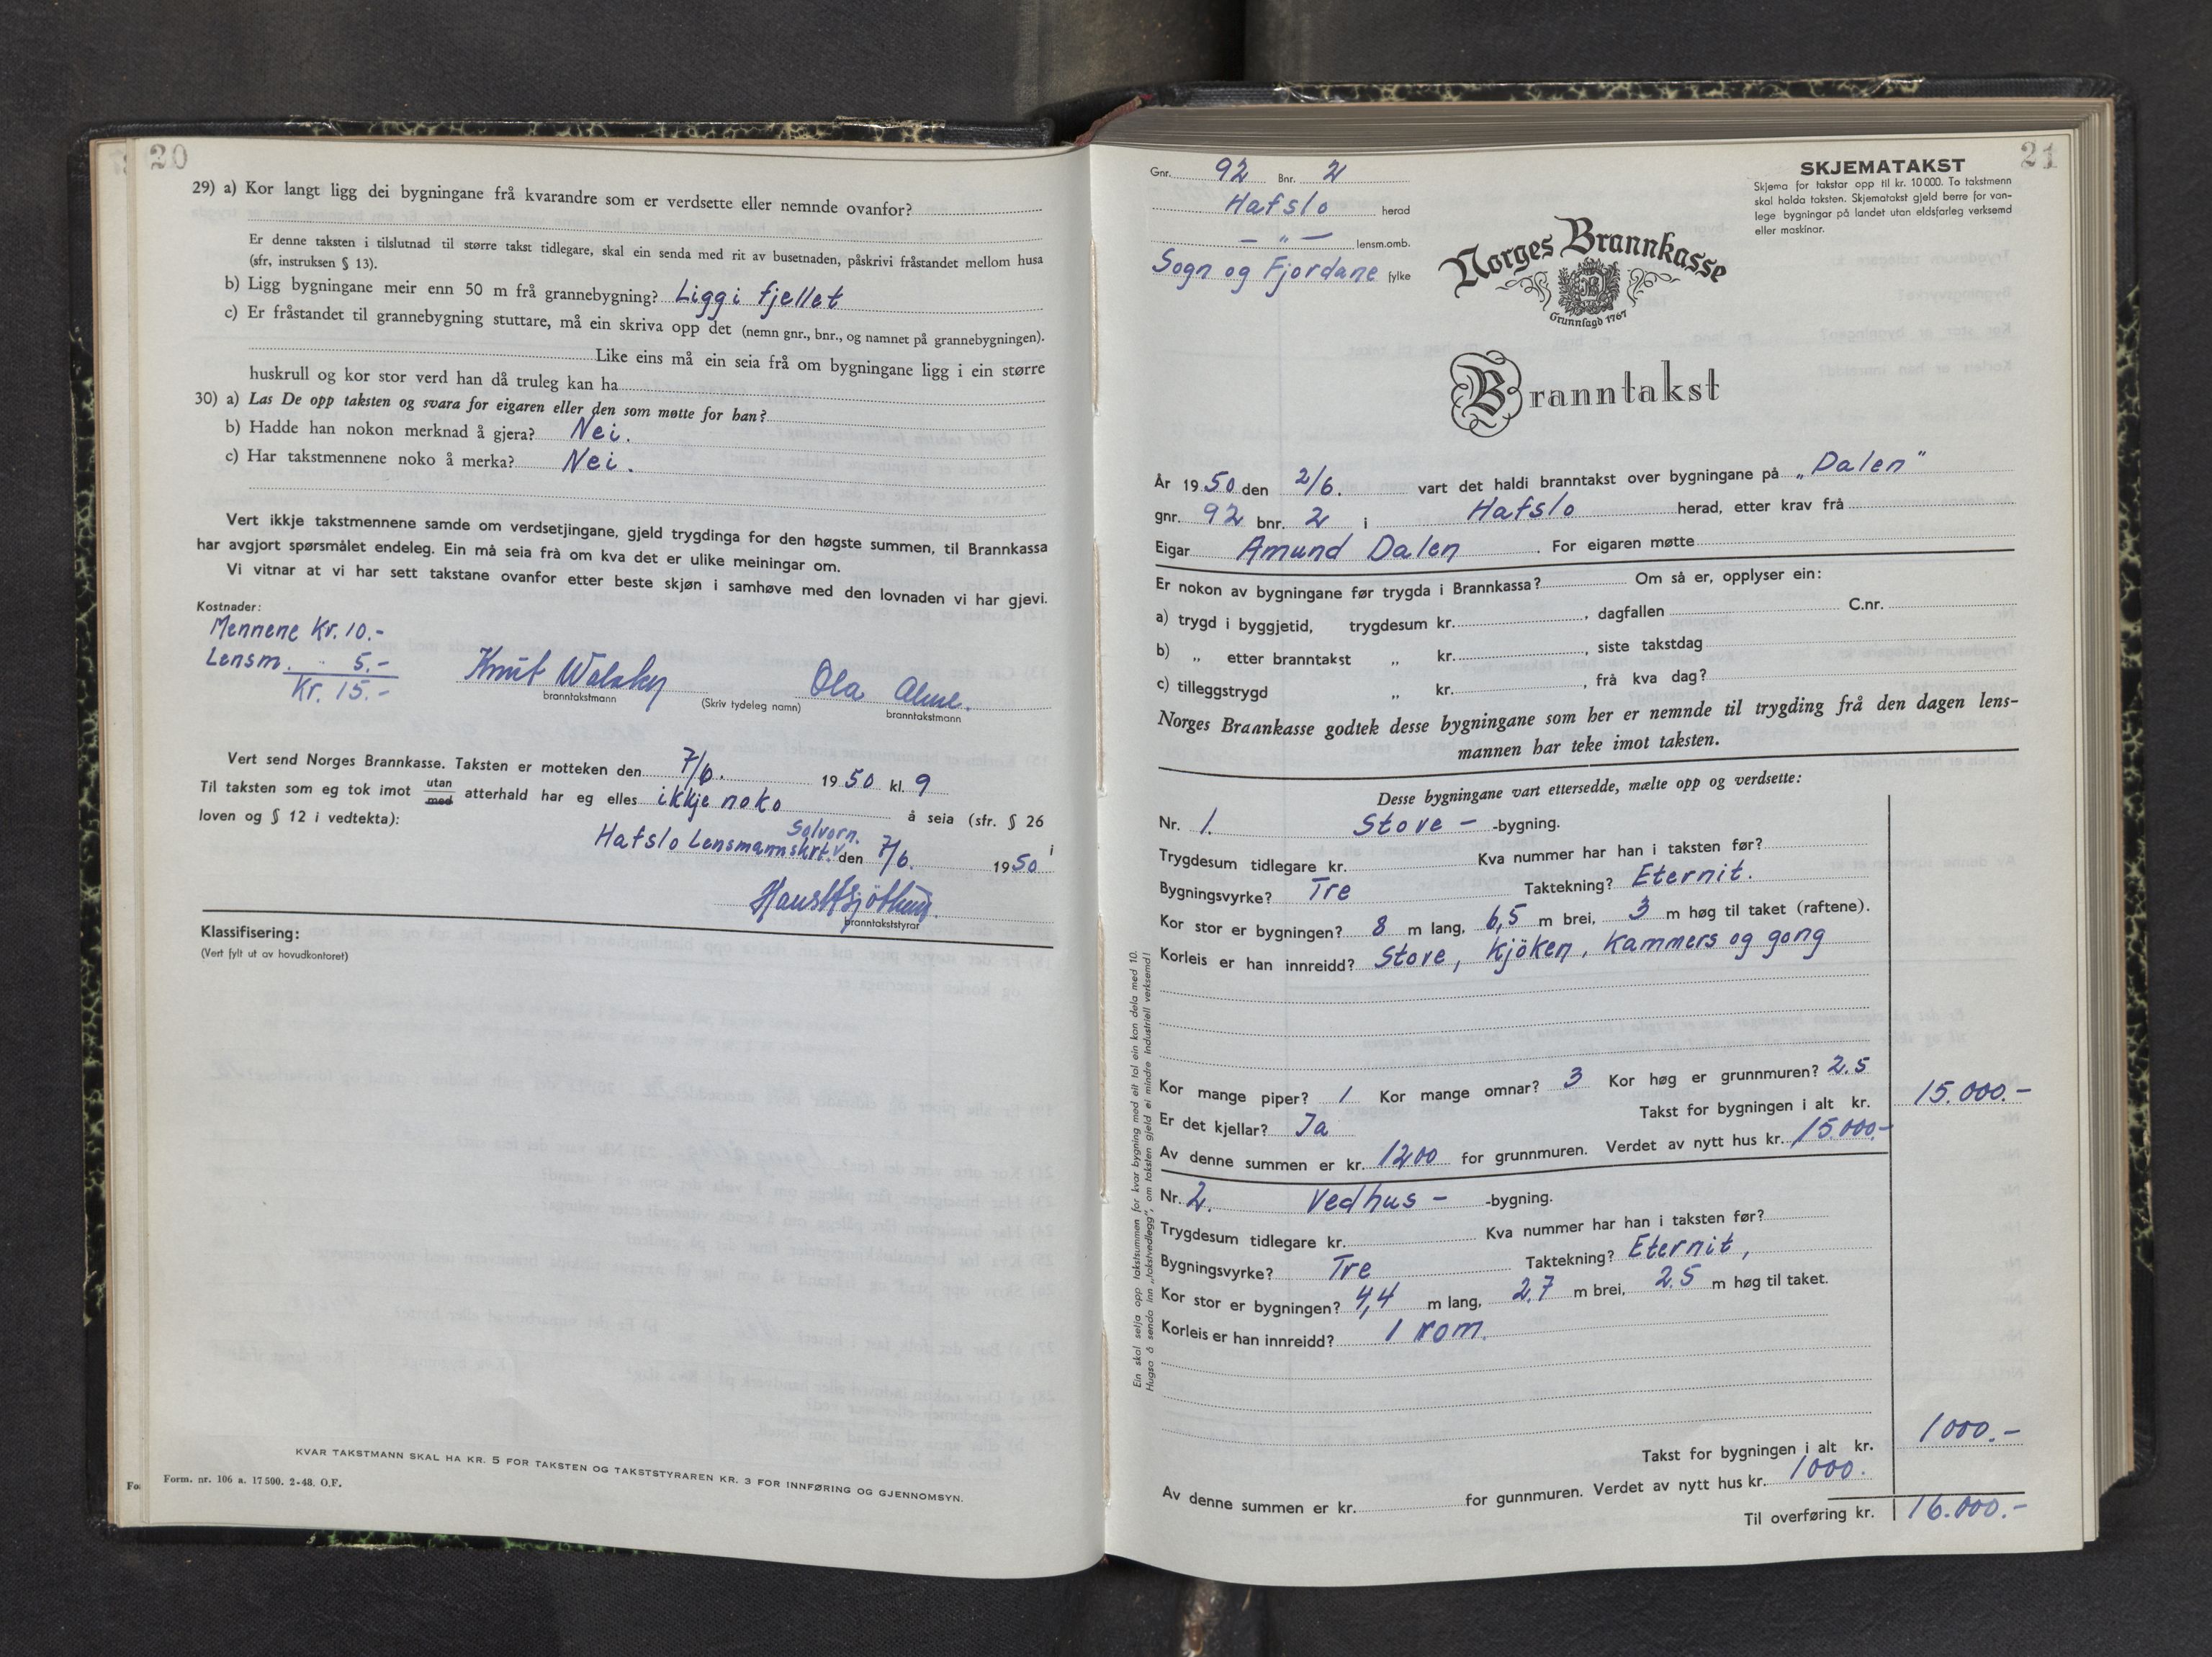 20
29) a) Kor langt ligg dei bygningane frå kvarandre som er verdsette eller nemnde ovanfor?
Er denne taksten i tilslutnad til større takst tidlegare, skal ein senda med rit av busetnaden, påskrivi fråstandet mellom husa
(sfr, instruksen § 13).
b) Ligg bygningane meir enn 50 m frå grannebygning? Ligg i fjellet
c) Er fråstandet til grannebygning stuttare, må ein skriva opp det (nemn gnr., bnr., og namnet på grannebygningen).
Like eins må ein seia frå om bygningane ligg i ein større
huskrull og kor stor verd han då truleg kan ha
30) a) Las De opp taksten og svara for eigaren eller den som møtte for han?
b) Hadde han nokon merknad å gjera? Nei.
c) Har takstmennene noko å merka? Nei.
Vert ikkje takstmennene samde om verdsetjingane, gjeld trygdinga for den høgste summen, til Brannkassa
har avgjort spørsmålet endeleg. Ein må seia frå om kva det er ulike meiningar om.
Vi vitnar at vi har sett takstane ovanfor etter beste skjøn i samhøve med den lovnaden vi har gjevi.
Kostnader:
Mennene Kr. 10.-
Lensm. " 5.-
Kr. 15.-
Knut
Ola
branntakstmann
(Skriv tydeleg namn)
branntakstmann
Vert send Norges Brannkasse. Taksten er motteken den 7/6. 1950 kl. 9
Til taksten som eg tok imot utan med atterhald har eg elles ikkje noko å seia (sfr. § 26 i
loven og § 12 i vedtekta):
Solvorn.
Hafslo Lensmannskrt. den 7/6. 1950
branntakststyrar
Klassifisering:
(Vert fylt ut av hovudkontoret)
KVAR TAKSTMANN SKAL HA KR. 5 FOR TAKSTEN OG TAKSTSTYRAREN KR. 3 FOR INNFØRING OG GJENNOMSYN.
Fo
Form. nr. 106 a. 17 500. 2-48. O.F.
21
Gnr. 92 Bnr. 2
Hafslo herad
— " — lensm.omb.
Sogn og Fjordane fylke
SKJEMATAKST
Skjema for takstar opp til kr. 10 000. To takstmenn
skal halda taksten. Skjematakst gjeld berre for van-
lege bygningar på landet utan eldsfarleg verksemd
eller maskinar.
Norges Brannkasse
Grunnlagd 1767
Branntakst
År 1950 den 2/6. vart det haldi branntakst over bygningane på „Dalen"
gnr. 92 bnr. 2 i Hafslo herad, etter krav frå
Eigar Amund Dalen. For eigaren møtte
Er nokon av bygningane før trygda i Brannkassa? Om så er, opplyser ein:
a) trygd i byggjetid, trygdesum kr. , dagfallen C.nr.
b) „ etter branntakst „ kr. , siste takstdag
c) tilleggstrygd „ kr. , frå kva dag?
Norges Brannkasse godtek desse bygningane som her er nemnde til trygding frå den dagen lens-
mannen har teke imot taksten.
Desse bygningane vart ettersedde, mælte opp og verdsette:
Nr. 1. Stove - -bygning.
Trygdesum tidlegare kr. Kva nummer har han i taksten før?
Bygningsvyrke? Tre Taktekning? Eternit.
Kor stor er bygningen? 8 m lang, 6,5 m brei, 3 m høg til taket (raftene).
Korleis er han innreidd? Stove, kjöken, kammers og gong
Kor mange piper? 1 Kor mange omnar? 3 Kor høg er grunnmuren? 2.5
Er det kjellar? Ja Takst for bygningen i alt kr. 15.000.-
Av denne summen er kr. 1200 for grunnmuren. Verdet av nytt hus kr. 15.000.-
Nr. 2. Vedhus - -bygning.
Trygdesum tidlegare kr. Kva nummer har han i taksten før?
Bygningsvyrke? Tre Taktekning? Eternit,
Kor stor er bygningen? 4,4 m lang, 2.7 m brei, 2.5 m høg til taket.
Korleis er han innreidd? 1 rom.
Takst for bygningen i alt kr. 1000.-
Av denne summen er kr. for gunnmuren. Verdet av nytt hus kr. 1000.
Til overføring kr. 16.000.-
Ein skal setja opp takstsummen for kvar bygning med eit tal ein kan dela med 10.
Hugsa å senda inn „takstvedlegg", om taksten gjeld ei mindre industriell verksemd!